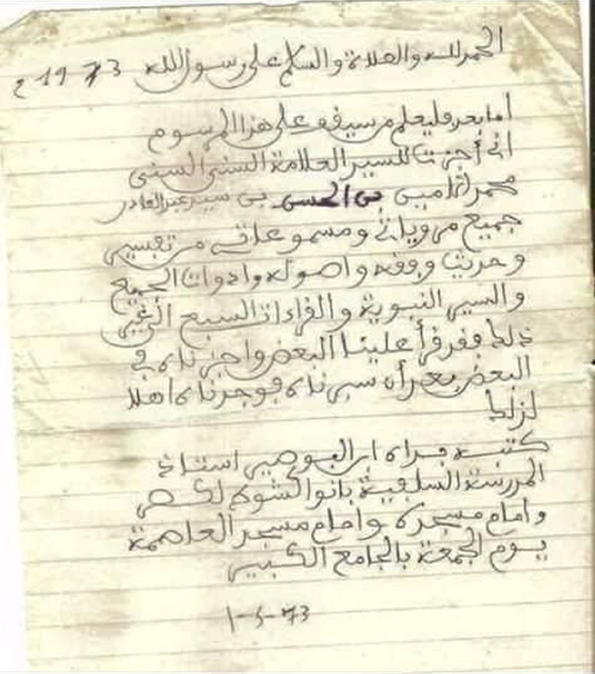 الحمد لله والصلاة والسلام على رسول الله 1973 م
أما بعد فليعلم من سيقف على هذا المرسوم
اني أجزت للسيد العلامة السني السني
محمد الامين بن الحسن بن سيد عبد القادر
جميع مروياتي ومسموعاتي من تفسير
وحديث وفقه واصوله وادوات الجميع
والسير النبوية والقراءات السبع الى غير
ذلك فقد قرأ علينا البعض واجزناه في
البعض بعد أن سبرناه فوجدناه اهلا
لذلك
كتبه بداه ابن البوصيري استاذ
المدرسة السلفية بانواكشوط لكصر
وامام مسجده وامام مسجد العاصمة
يوم الجمعة بالجامع الكبير
1-5-73